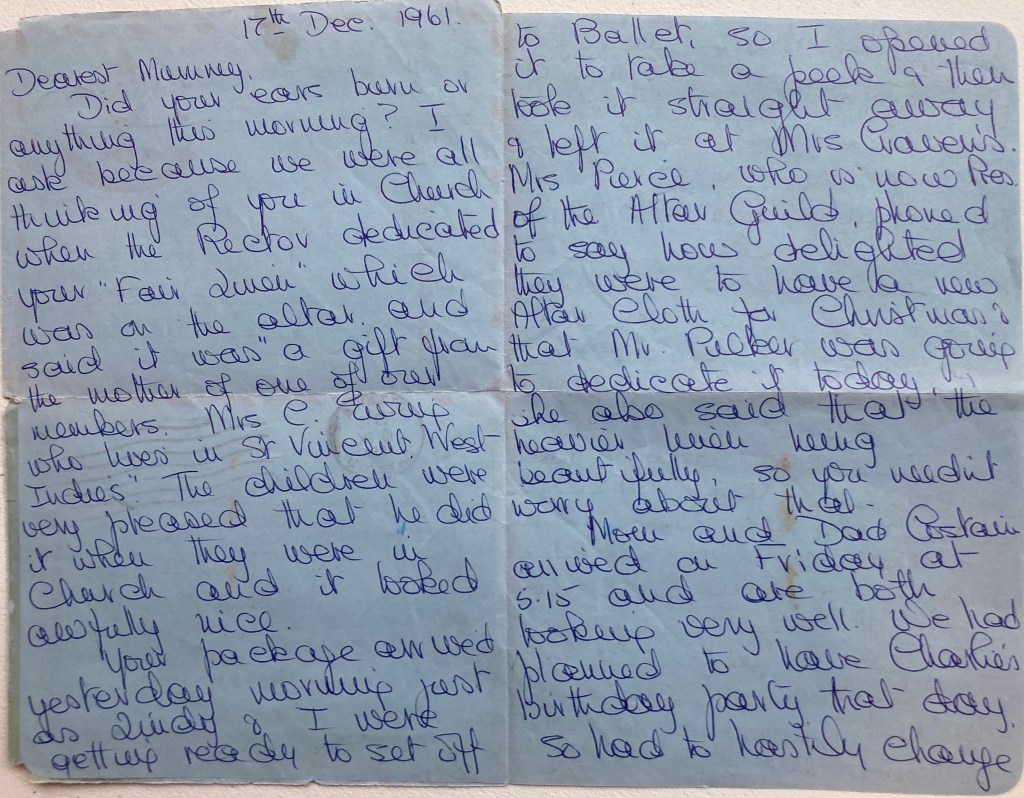 17th Dec. 1961.
Dearest Mummy,
Did your ears burn or
anything this morning? I
ask because we were all
thinking of you in Church
when the Rector dedicated
your "Fair Linen" which
was on the altar, and
said it was "a gift from
the mother of one of our
members. Mrs C.
who lives in St Vincent, West
Indies". The children were
very pleased that he did
it when they were in
Church and it looked
awfully nice.
Your package arrived
yesterday morning just
as Lindy & I were
getting ready to set off
to Ballet, so I opened
it to take a peek & then
took it straight away
& left it at Mrs Craven's.
Mrs Pierce, who is now Pres.
of the Altar Guild, phoned
to say how delighted
they were to have a new
Altar Cloth for Christmas &
that Mr. was going
to dedicate it today.
She also said that "the
heavier linen hung
beautifully, so you needn't
worry about that.
Mom and Dad Costain
arrived on Friday at
5.15 and are both
looking very well. We had
planned to have Charlie's
Birthday party that day,
so had to hastily change